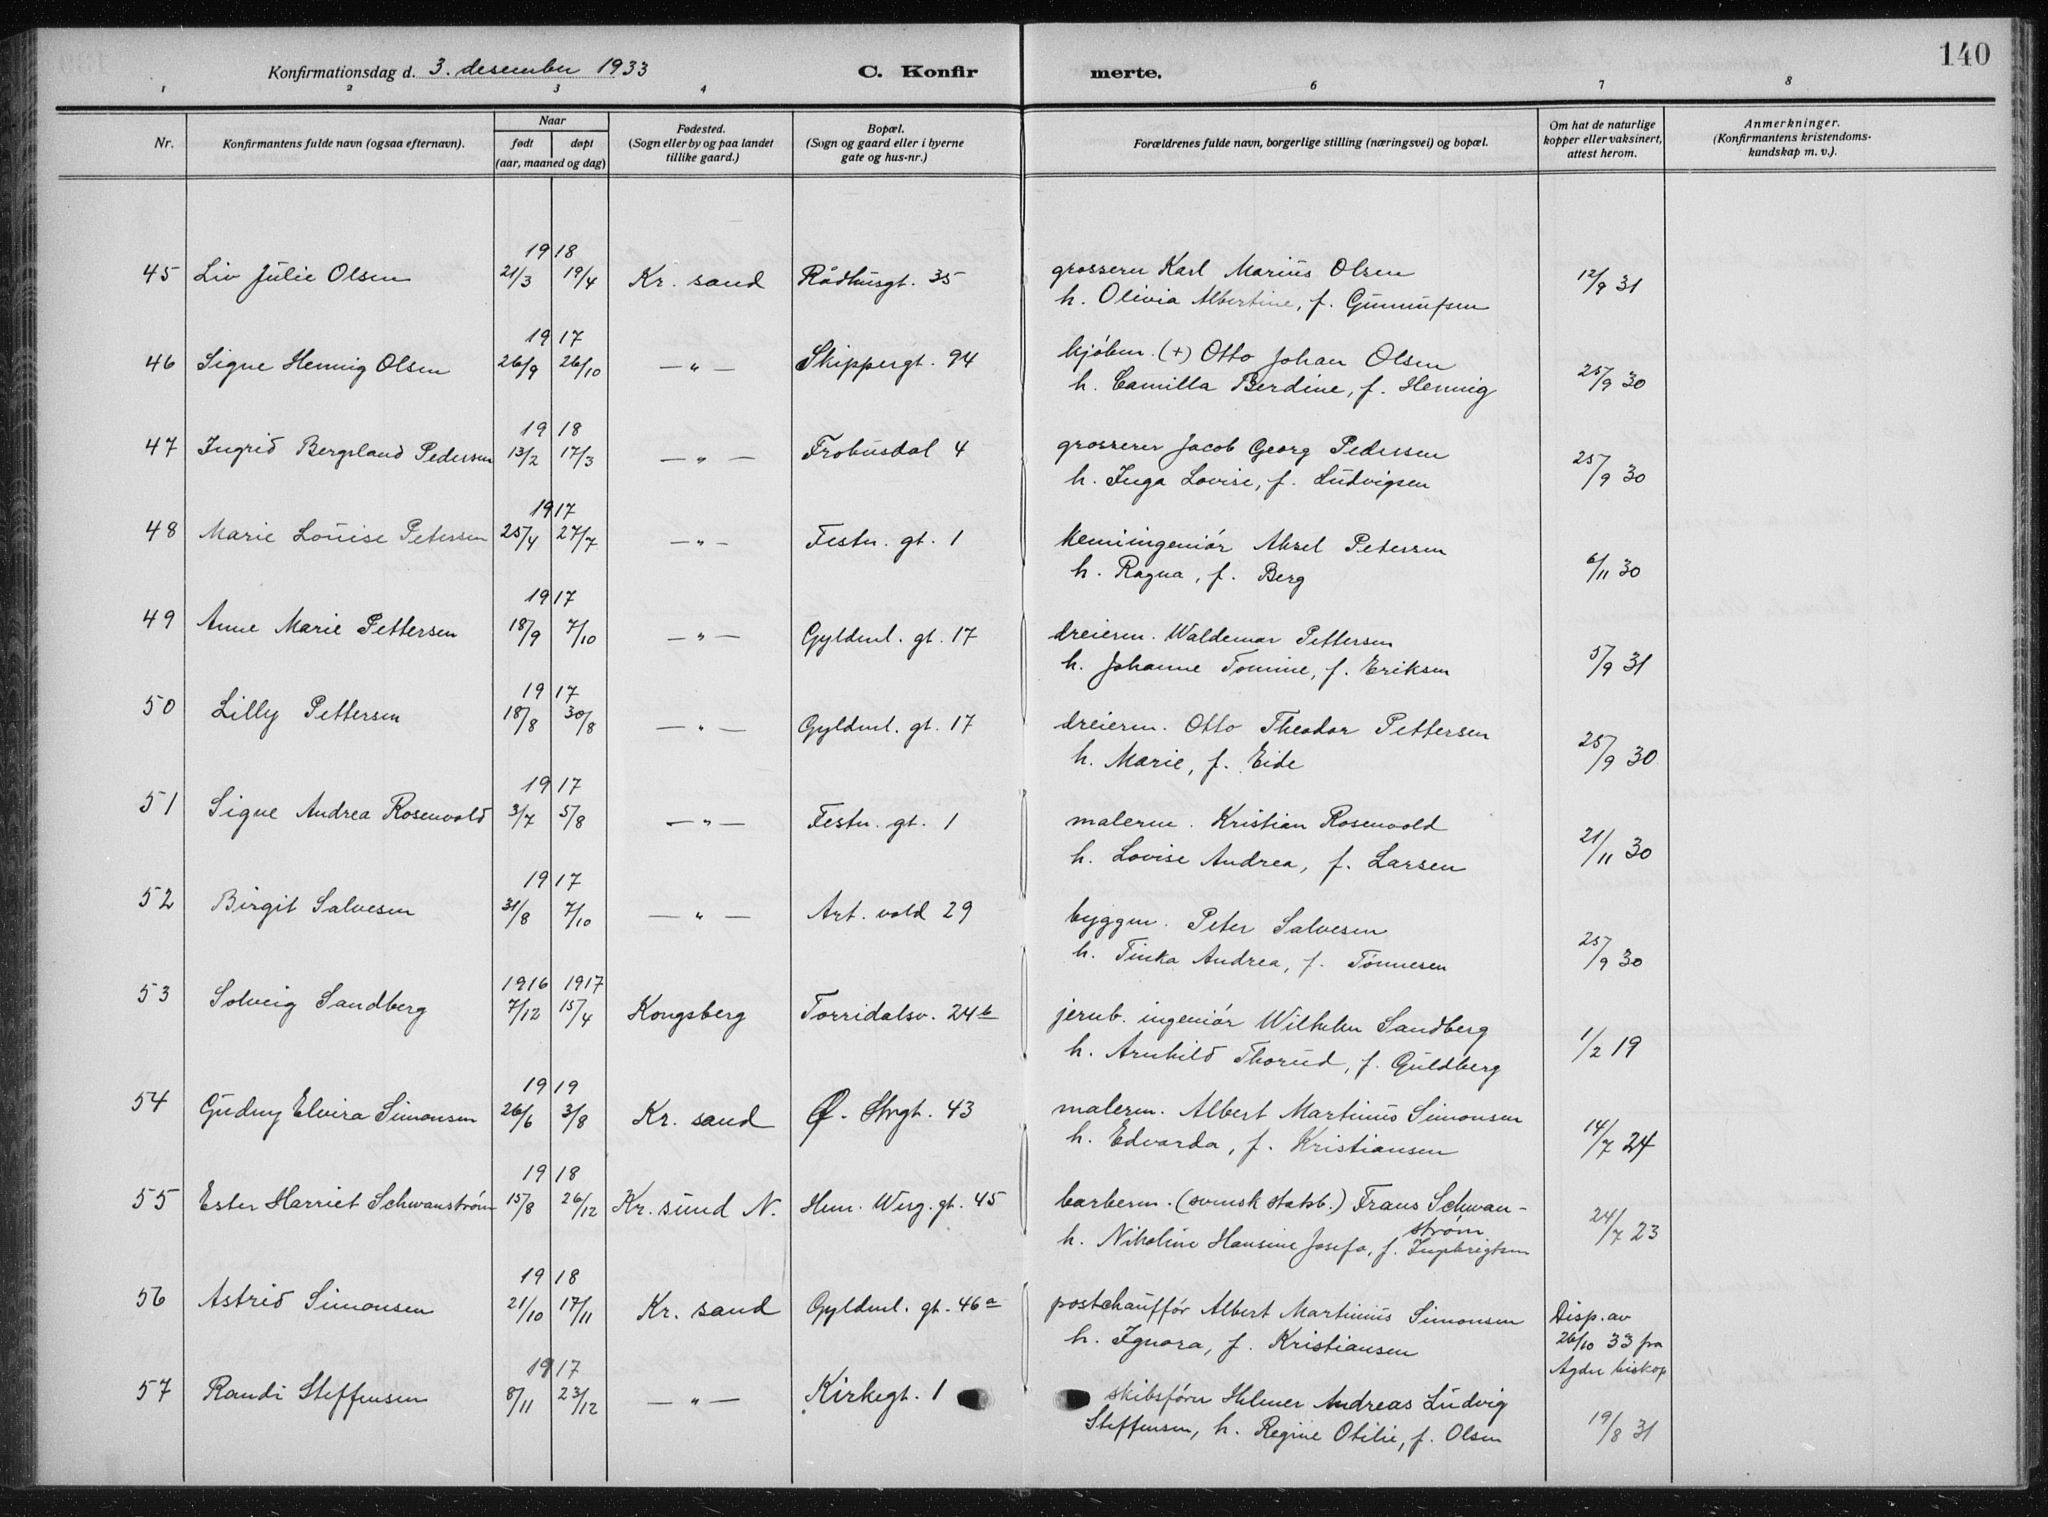 140
Konfirmationsdag d. 3. desember 1933 C. Konfir merte.
1 2 3 4 6 7 8
Nr. Konfirmantens fulde navn (ogsaa efternavn). Naar født døpt (aar, maaned og dag) Fødested. (Sogn eller by og paa landet tillike gaard.) Bopæl. (Sogn og gaard eller i byerne gate og hus-nr.) Forældrenes fulde navn, borgerlige stilling (næringsvei) og bopæl. Om hat de naturlige kopper eller vaksinert, attest herom. Anmerkninger. (Konfirmantens kristendoms-kundskap m. v.).
1918
45 Liv Julie Olsen 21/3 19/4 Kr. sand Rådhusgt. 35 grosserer Karl Marius Olsen 12/9 31
h. Olivia Albertine, f. Gunnufsen
1917
46 Signe Hennig Olsen 26/9 26/10 —„— Skippergt. 94 kjøbm. (+) Otto Johan Olsen 25/9 30
h. Camilla Berdine, f. Hennig
1918
47 Ingrid Bergsland Pedersen 13/2 17/3 —„— Frobusdal 4 grosserer Jacob Georg Pedersen 25/9 30
h. Inga Lovise, f. Ludvigsen
1917
48 Marie Louise Petersen 25/4 27/7 —„— Festn. gt. 1 kemiingeniør Aksel Petersen 6/11 30
h. Ragna, f. Berg
1917
49 Anne Marie Pettersen 18/9 7/10 —„— Gyldenl. gt. 17 dreierm. Waldemar Pettersen 5/9 31
h. Johanne Tomine, f. Eriksen
1917
50 Lilly Pettersen 18/8 30/8 —„— Gyldenl. gt. 17 dreierm. Otto Theodor Pettersen 25/9 30
h. Marie, f. Eide
1917
51 Signe Andrea Rosenvold 3/7 5/8 —„— Festn. gt. 1 malerm. Kristian Rosenvold 21/11 30
h. Lovise Andrea, f. Larsen
1917
52 Birgit Salvesen 31/8 7/10 —„— Art. vold 29 byggm. Peter Salvesen 25/9 30
h. Tinka Andrea, f. Tønnesen
1916 1917
53 Solveig Sandberg 7/12 15/4 Kongsberg Torridalsv. 24b jernb. ingeniør Wilhelm Sandberg 1/2 19
h. Arnhild Thorud, f. Guldberg
1919
54 Gudny Elvira Simonsen 26/6 3/8 Kr. sand Ø. Strgt. 43 malerm. Albert Martinius Simonsen 14/7 24
h. Edvarda, f. Kristiansen
1918
55 Ester Harriet Schwanstrøm 15/8 26/12 Kr. sund N. Hen. Werg. gt. 45 barberm. (svensk statsb.) Frans Schwan-
strøm 24/7 23
h. Nikoline Hansine Josefa, f. Ingebrigtsen
1918
56 Astrid Simonsen 21/10 17/11 Kr. sand Gyldenl. gt. 46a postchauffør Albert Martinius Simonsen Disp. av
h. Ignora, f. Kristiansen 26/10 33 fra
Agder biskop
1917
57 Randi Steffensen 8/11 23/12 —„— Kirkegt. 1 skibsfører Helmer Andreas Ludvig 19/8 31
Steffensen, h. Regine Otilie, f. Olsen